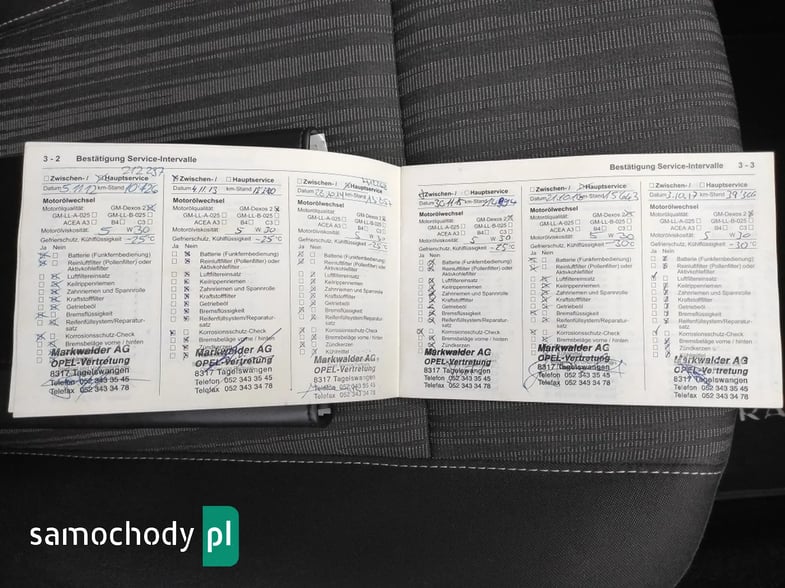 3 - 2 Bestätigung Service-Intervalle
Zwischen- / Hauptservice
Datum 5.11.12 km-Stand 10426
Motorölwechsel
Motorölqualität: GM-Dexos 2
GM-LL-A-025 GM-LL-B-025
ACEA A3 B4 C3
Motorölviskosität: 5 W 30
Gefrierschutz, Kühlflüssigkeit -25°C
Ja Nein
Batterie (Funkfernbedienung)
Reinluftfilter (Pollenfilter) oder
Aktivkohlefilter
Luftfiltereinsatz
Keilrippenriemen
Zahnriemen und Spannrolle
Kraftstofffilter
Getriebeöl
Bremsflüssigkeit
Reifenfüllsystem/Reparatur-
satz
Korrosionsschutz-Check
Bremsbeläge vorne / hinten
Markwalder AG
OPEL-Vertretung
8317 Tagelswangen
Telefon 052 343 35 45
Telefax 052 343 34 78
Zwischen- / Hauptservice
Datum 4.11.13 km-Stand
Motorölwechsel
Motorölqualität: GM-Dexos 2
GM-LL-A-025 GM-LL-B-025
ACEA A3 B4 C3
Motorölviskosität: 5 W 30
Gefrierschutz, Kühlflüssigkeit -25°C
Ja Nein
Batterie (Funkfernbedienung)
Reinluftfilter (Pollenfilter) oder
Aktivkohlefilter
Luftfiltereinsatz
Keilrippenriemen
Zahnriemen und Spannrolle
Kraftstofffilter
Getriebeöl
Bremsflüssigkeit
Reifenfüllsystem/Reparatur-
satz
Korrosionsschutz-Check
Bremsbeläge vorne / hinten
Zündkerzen
Markwalder AG
OPEL-Vertretung
8317 Tagelswangen
Telefon 052 343 35 45
Telefax 052 343 34 78
Zwischen- / Hauptservice
Datum km-Stand
Motorölwechsel
Motorölqualität: GM-Dexos 2
GM-LL-A-025 GM-LL-B-025
ACEA A3 B4 C3
Motorölviskosität: 5 W 30
Gefrierschutz, Kühlflüssigkeit -25°C
Ja Nein
Batterie (Funkfernbedienung)
Reinluftfilter (Pollenfilter) oder
Aktivkohlefilter
Luftfiltereinsatz
Keilrippenriemen
Zahnriemen und Spannrolle
Kraftstofffilter
Getriebeöl
Bremsflüssigkeit
Reifenfüllsystem/Reparatur-
satz
Korrosionsschutz-Check
Bremsbeläge vorne / hinten
Zündkerzen
Kühlmittel
Markwalder AG
OPEL-Vertretung
8317 Tagelswangen
Telefon 052 343 35 45
Telefax 052 343 34 78
Bestätigung Service-Intervalle 3 - 3
Zwischen- / Hauptservice
Datum km-Stand
Motorölwechsel
Motorölqualität: GM-Dexos 2
GM-LL-A-025 GM-LL-B-025
ACEA A3 B4 C3
Motorölviskosität: 5 W 30
Gefrierschutz, Kühlflüssigkeit -25°C
Ja Nein
Batterie (Funkfernbedienung)
Reinluftfilter (Pollenfilter) oder
Aktivkohlefilter
Luftfiltereinsatz
Keilrippenriemen
Zahnriemen und Spannrolle
Kraftstofffilter
Getriebeöl
Bremsflüssigkeit
Reifenfüllsystem/Reparatur-
satz
Korrosionsschutz-Check
Bremsbeläge vorne / hinten
Zündkerzen
Markwalder AG
OPEL-Vertretung
8317 Tagelswangen
Telefon 052 343 35 45
Telefax 052 343 34 78
Zwischen- / Hauptservice
Datum km-Stand
Motorölwechsel
Motorölqualität: GM-Dexos 2
GM-LL-A-025 GM-LL-B-025
ACEA A3 B4 C3
Motorölviskosität: 5 W 30
Gefrierschutz, Kühlflüssigkeit -30°C
Ja Nein
Batterie (Funkfernbedienung)
Reinluftfilter (Pollenfilter) oder
Aktivkohlefilter
Luftfiltereinsatz
Keilrippenriemen
Zahnriemen und Spannrolle
Kraftstofffilter
Getriebeöl
Bremsflüssigkeit
Reifenfüllsystem/Reparatur-
satz
Korrosionsschutz-Check
Bremsbeläge vorne / hinten
Markwalder AG
OPEL-Vertretung
8317 Tagelswangen
Telefon 052 343 35 45
Telefax 052 343 34 78
Zwischen- / Hauptservice
Datum 3.10.17 km-Stand
Motorölwechsel
Motorölqualität: GM-Dexos 2
GM-LL-A-025 GM-LL-B-025
ACEA A3 B4 C3
Motorölviskosität: 5 W 30
Gefrierschutz, Kühlflüssigkeit -30°C
Ja Nein
Batterie (Funkfernbedienung)
Reinluftfilter (Pollenfilter) oder
Aktivkohlefilter
Luftfiltereinsatz
Keilrippenriemen
Zahnriemen und Spannrolle
Kraftstofffilter
Getriebeöl
Bremsflüssigkeit
Reifenfüllsystem/Reparatur-
satz
Korrosionsschutz-Check
Bremsbeläge vorne / hinten
Zündkerzen
Markwalder AG
OPEL-Vertretung
8317 Tagelswangen
Telefon 052 343 35 45
Telefax 052 343 34 78
samochody pl